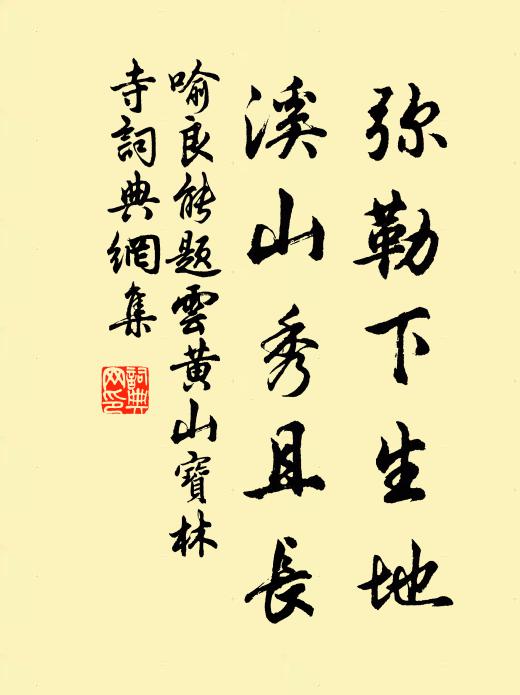 弥勒下生地
溪山秀且長
喻良能題雲黃山寶林
寺詞典網集
詞典
网印